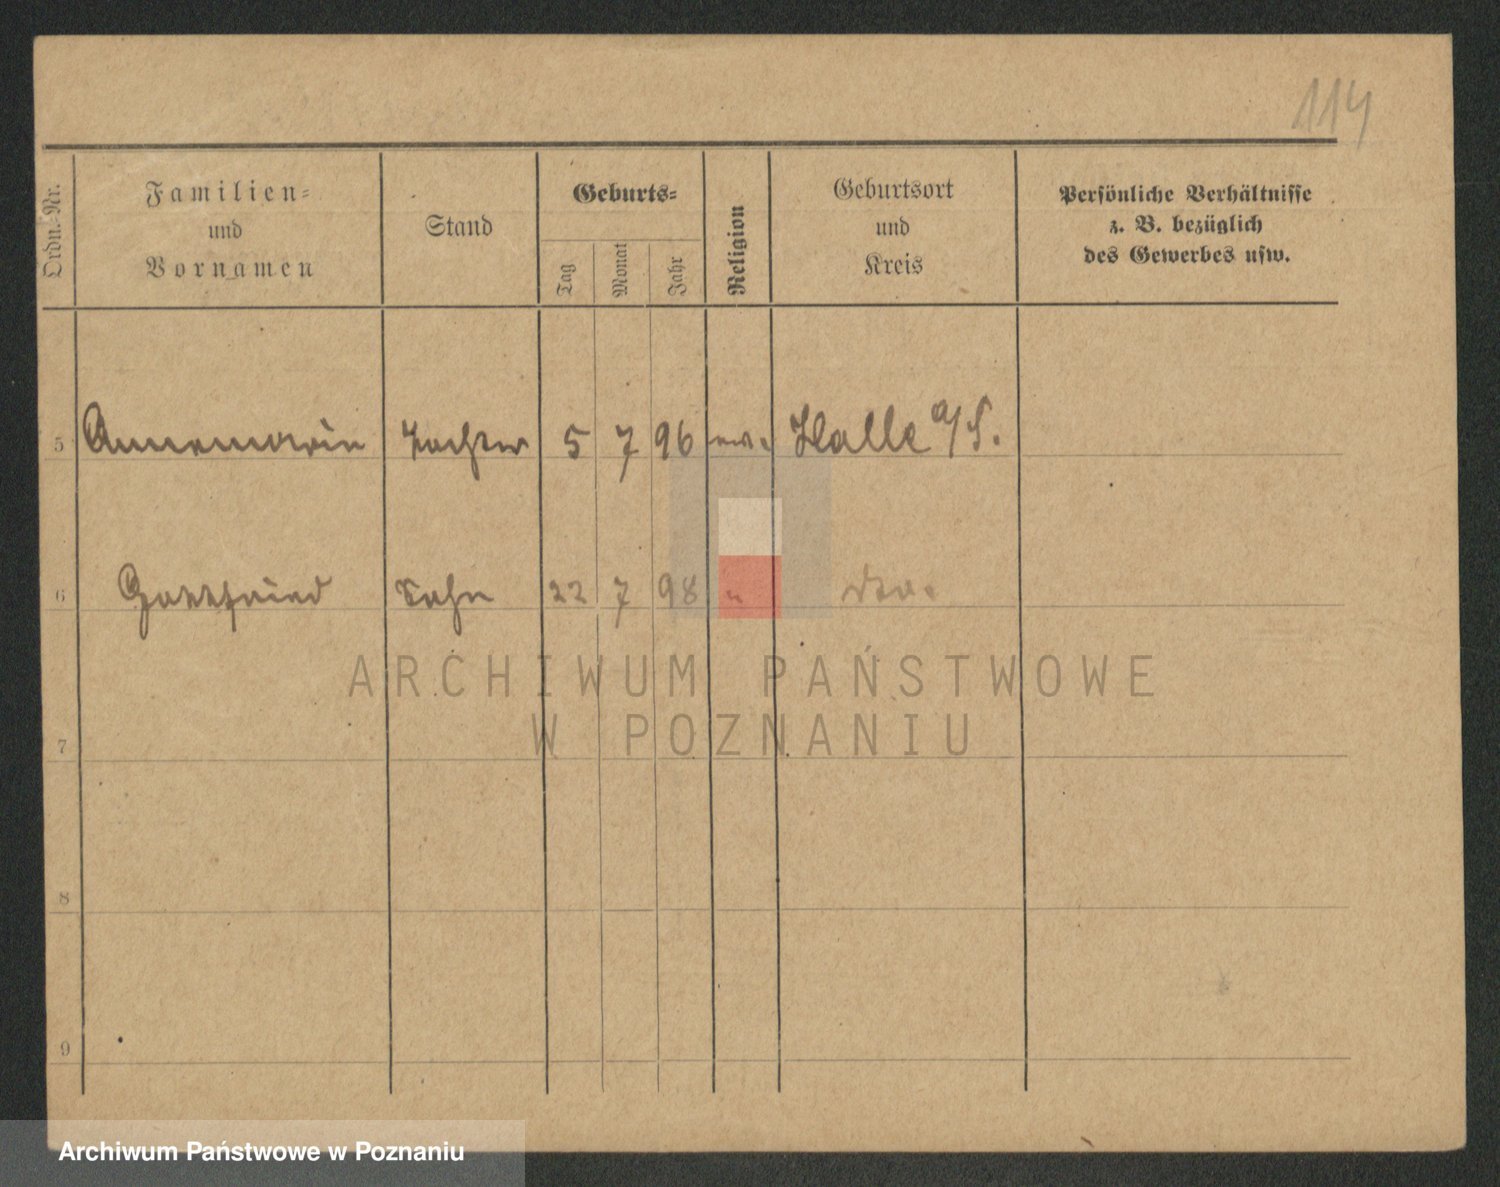 114
Ordn.-Nr.
Familien-
und
Vornamen
Stand
Geburts-
Tag
Monat
Jahr
Religion
Geburtsort
und
Kreis
Persönliche Verhältnisse
z. B. bezüglich
des Gewerbes usw.
5 Annemarie Tochter 5 7 96 ev. Halle a/S.
6 Gottfried Sohn 22 7 98 " dto.
ARCHIWUM PAŃSTWOWE
W POZNANIU
7
8
9
Archiwum Państwowe w Poznaniu